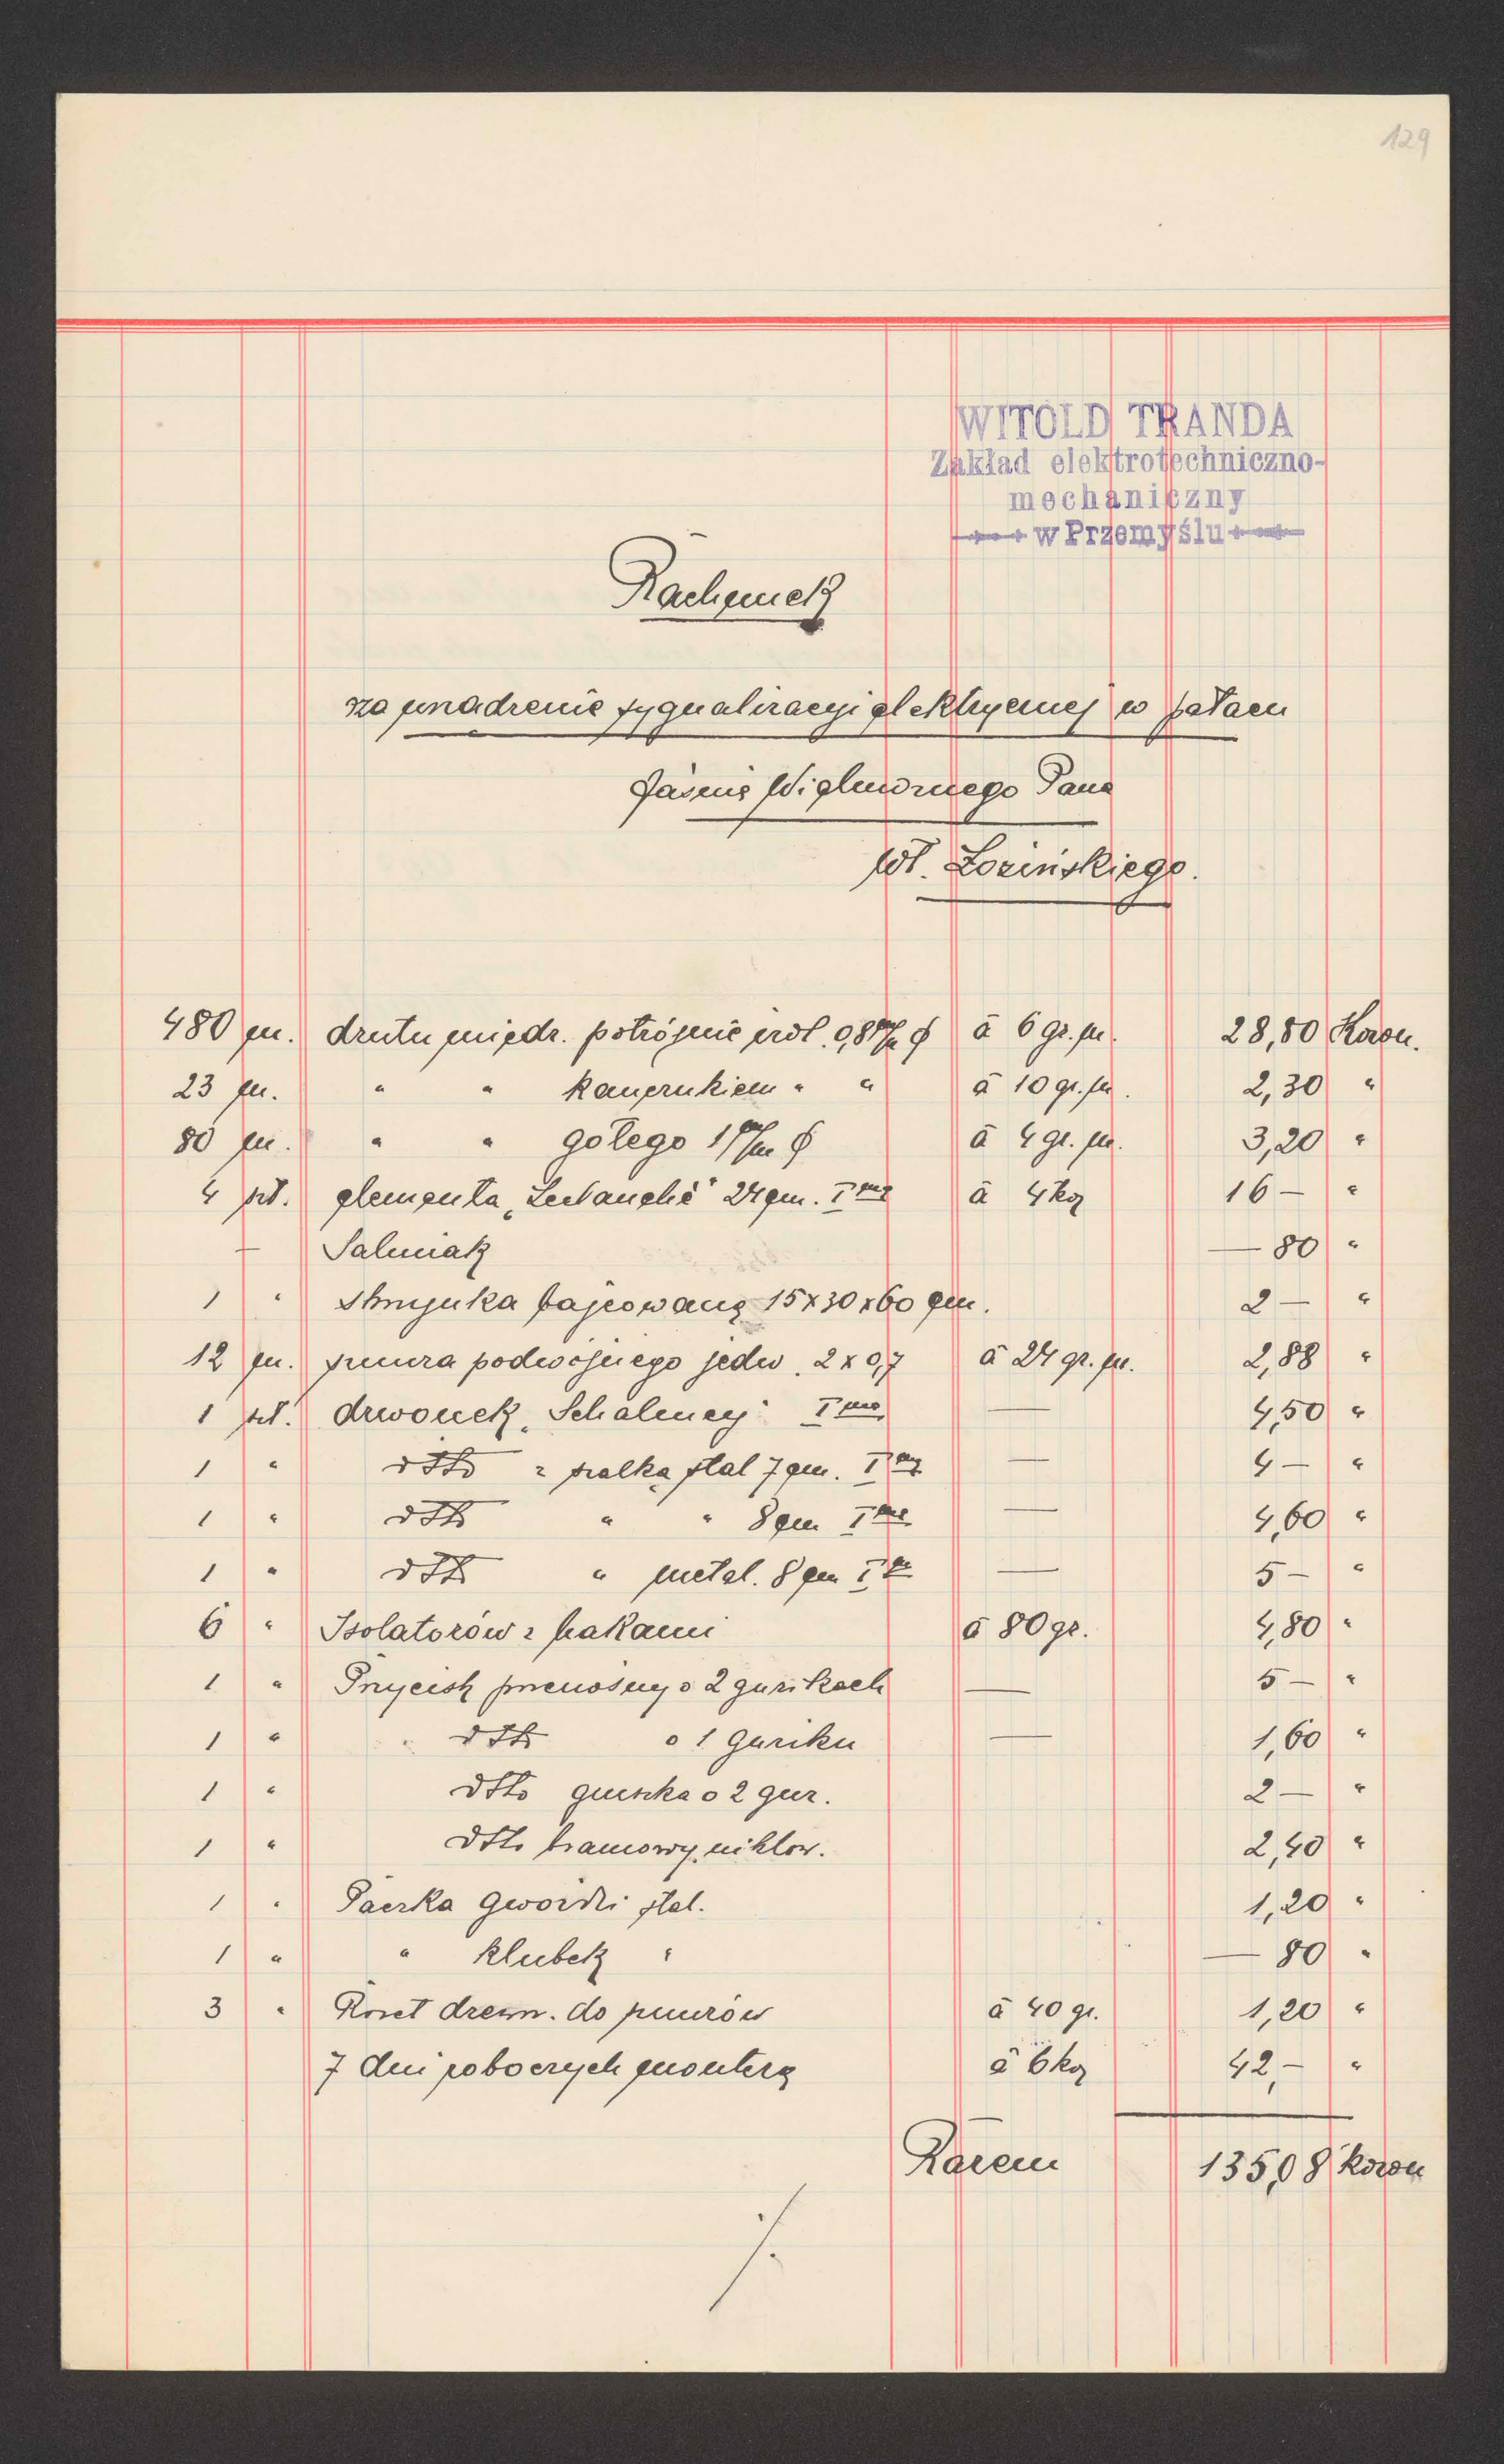 129
WITOLD TRANDA
Zakład elektrotechniczno-
mechaniczny
w Przemyślu
Rachunek
za urządzenie sygnalizacyi elektrycznej w pałacu
Jaśnie Wielmożnego Pana
Wł. Łozińskiego.
480 m. drutu miedz. potrójnie izol. 0,8 m/m ϕ à 6 gr. m. 28,80 Koron.
23 m. " " kauczukiem " " à 10 gr. m. 2,30 "
80 m. " " gołego 1 m/m ϕ à 4 gr. m. 3,20 "
4 szt. elementa „Leclanché" 24 cm. Ima à 4 kor 16 — "
— Salmiak — 80 "
1 " skrzynka bajcowana 15 x 30 x 60 cm. 2 — "
12 m. sznura podwójnego jedw. 2 x 0,7 à 24 gr. m. 2,88 "
1 szt. dzwonek „Schalmey" Ima — 4,50 "
1 " dtto z szalką stal 7 cm. Ima — 4 — "
1 " dtto " " 8 cm Ima — 4,60 "
1 " dtto " metal. 8 cm Ima — 5 — "
6 " Isolatorów z hakami à 80 gr. 4,80 "
1 " Przycisk przenośny o 2 guzikach — 5 — "
1 " dtto o 1 guziku — 1,60 "
1 " dtto gruszka o 2 guz. 2 — "
1 " dtto bramowy niklow. 2,40 "
1 " Paczka gwoździ stal. 1,20 "
1 " " klubek " — 80 "
3 " Rozet drewn. do sznurów à 40 gr. 1,20 "
7 dni roboczych montera à 6 kor 42,— "
Razem 135,08 koron
./.